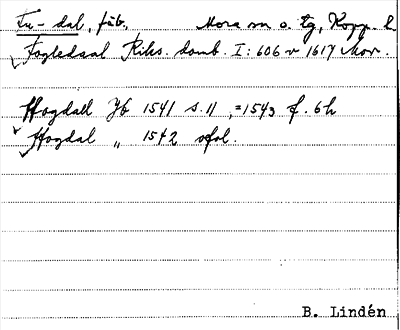 Fu-dal, fäb. Mora sn o. tg, Kopp. l.
Fogledaal Riks. domb. I: 606 v 1617 Mor.
Hogdall Jb 1541 s. 11, =1543 f. 6 h
Hogdal " 1542 ofol.
B. Lindén